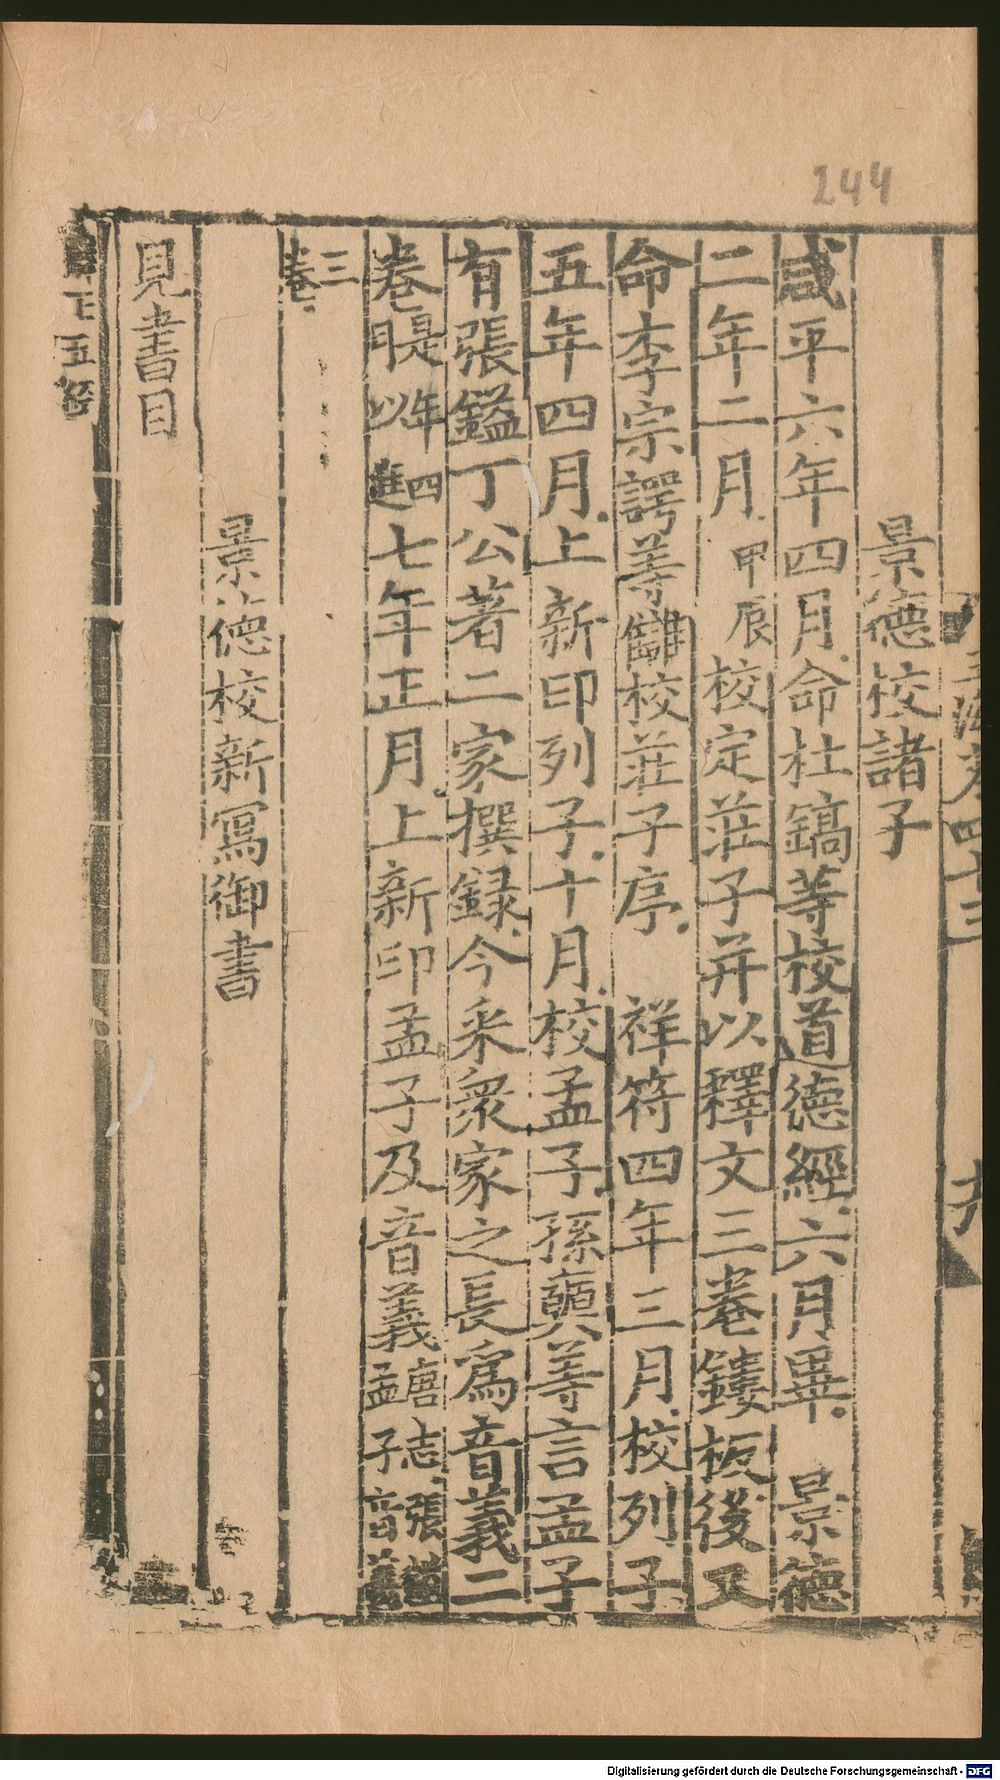 244
景德校諸子
咸平六年四月命杜鎬等校道德經六月畢 景德
二年二月甲辰校定莊子并以釋文三卷鏤板後又
命李宗諤等讎校莊子序 祥符四年三月校列子
五年四月上新印列子十月校孟子孫奭等言孟子
有張鎰丁公著二家撰録今采衆家之長爲音義二
卷是年四月以進七年正月上新印孟子及音義唐志張鎰孟子音義
三卷
景德校新寫御書
見書目
Digitalisierung gefördert durch die Deutsche Forschungsgemeinschaft - DFG